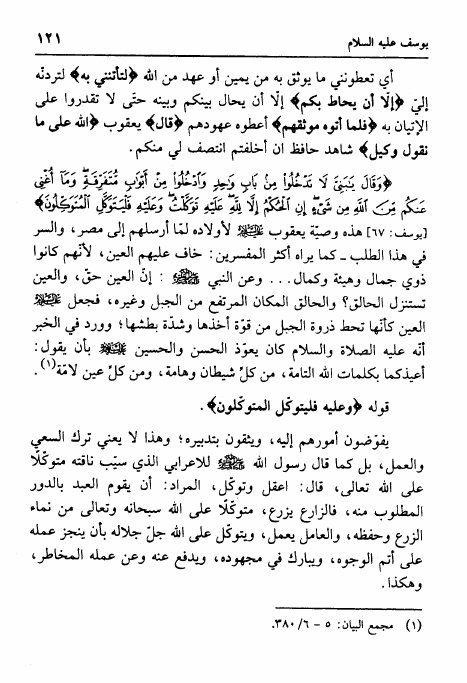 يوسف عليه السلام ١٢١
أي تعطوني ما يوثق به من يمين أو عهد من الله ﴿لتأتنني به﴾ لتردنّه
إليّ ﴿إلّا أن يحاط بكم﴾ إلّا أن يحال بينكم وبينه حتّى لا تقدروا على
الإتيان به ﴿فلما أتوه موثقهم﴾ أعطوه عهودهم ﴿قال﴾ يعقوب ﴿الله على ما
نقول وكيل﴾ شاهد حافظ ان أخلفتم انتصف لي منكم.
﴿وَقَالَ يَبَنِيَّ لَا تَدْخُلُوا مِنْ بَابٍ وَاحِدٍ وَادْخُلُوا مِنْ أَبْوَابٍ مُتَفَرِّقَةٍ وَمَا أُغْنِي
عَنكُم مِّنَ اللَّهِ مِن شَيْءٍ إِنِ الْحُكْمُ إِلَّا لِلَّهِ عَلَيْهِ تَوَكَّلْتُ وَعَلَيْهِ فَلْيَتَوَكَّلِ الْمُتَوَكِّلُونَ﴾
[يوسف: ٦٧] هذه وصيّة يعقوب لأولاده لمّا أرسلهم إلى مصر، والسر
في هذا الطلب ـ كما يراه أكثر المفسرين: خاف عليهم العين، لأنّهم كانوا
ذوي جمال وهيئة وكمال... وعن النبي : إنّ العين حقّ، والعين
تستنزل الحالق؟ والحالق المكان المرتفع من الجبل وغيره، فجعل
العين كأنّها تحط ذروة الجبل من قوّة أخذها وشدّة بطشها؛ وورد في الخبر
أنّه عليه الصلاة والسلام كان يعوّذ الحسن والحسين بأن يقول:
أعيذكما بكلمات الله التامة، من كلّ شيطان وهامة، ومن كلّ عين لامّة(١).
قوله ﴿وعليه فليتوكل المتوكلون﴾.
يفوّضون أمورهم إليه، ويثقون بتدبيره؛ وهذا لا يعني ترك السعي
والعمل، بل كما قال رسول الله للاعرابي الذي سيّب ناقته متوكلًا
على الله تعالى، قال: اعقل وتوكل، المراد: أن يقوم العبد بالدور
المطلوب منه، فالزارع يزرع، متوكلًا على الله سبحانه وتعالى من نماء
الزرع وحفظه، والعامل يعمل، ويتوكل على الله جلّ جلاله بأن ينجز عمله
على أتم الوجوه، ويبارك في مجهوده، ويدفع عنه وعن عمله المخاطر،
وهكذا.
(١) مجمع البيان: ٥ - ٦/ ٣٨٠.